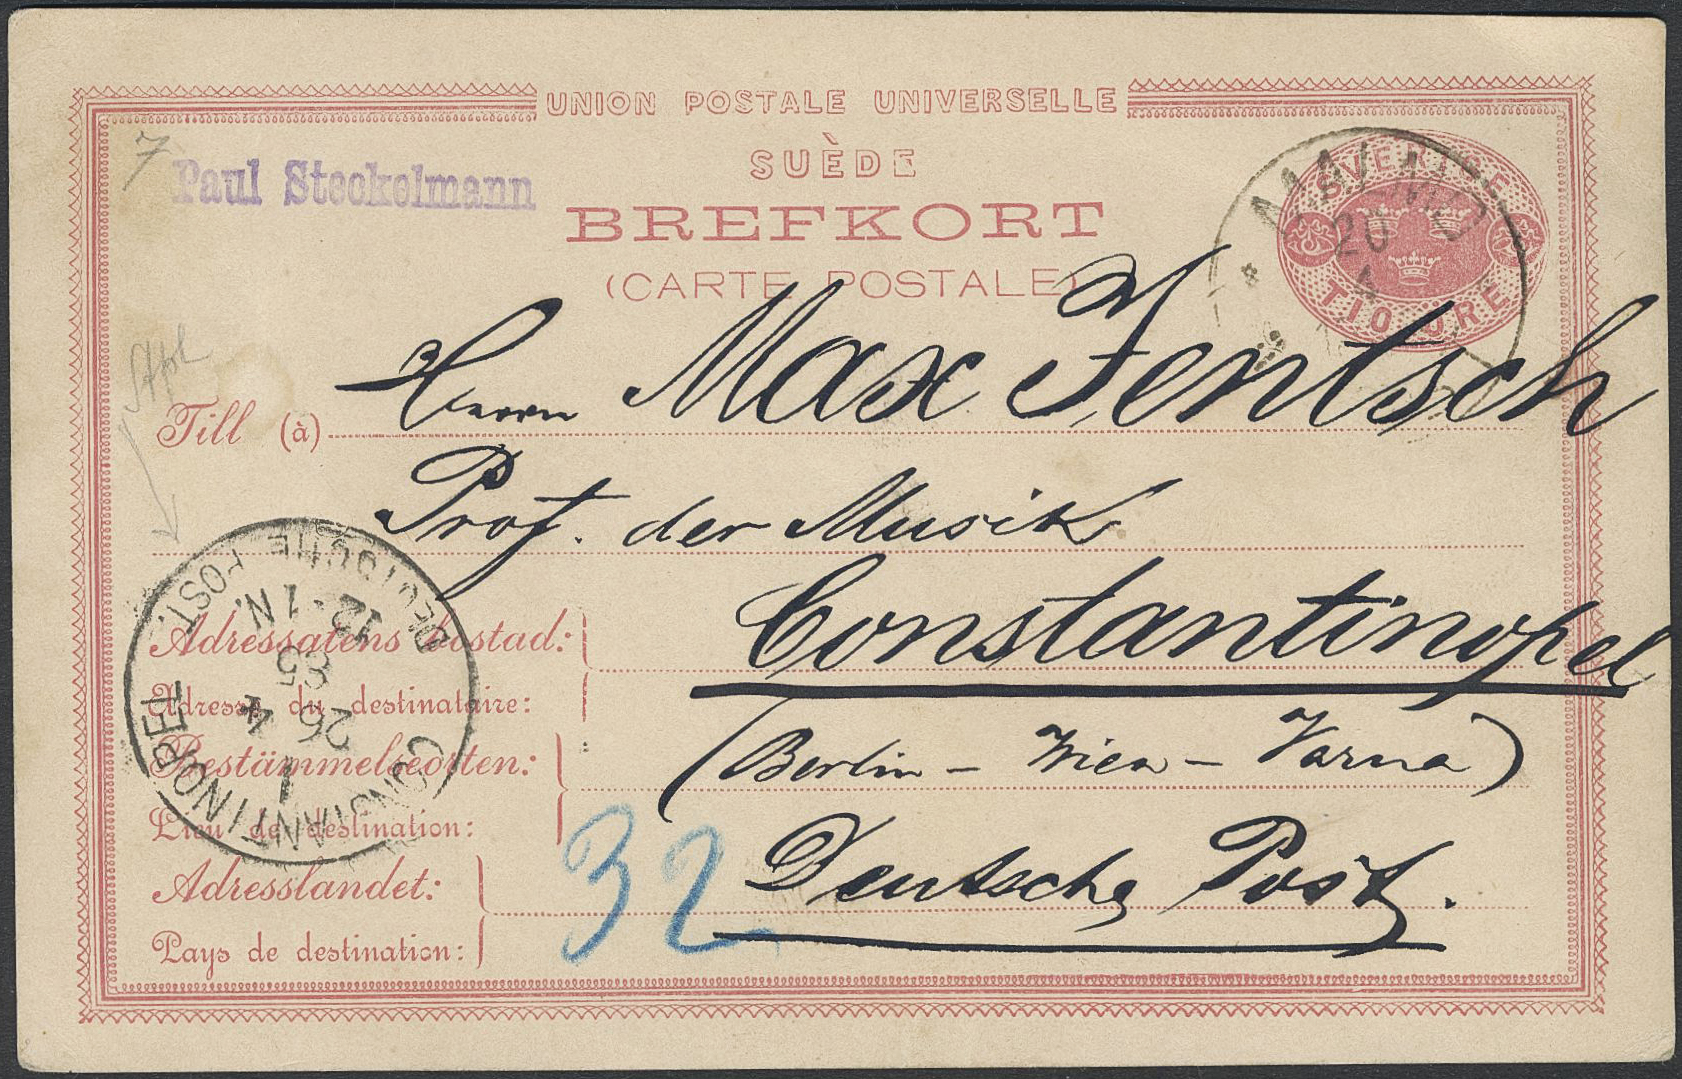 UNION POSTALE UNIVERSELLE
SUÈDE
BREFKORT
(CARTE POSTALE)
7
Paul Steckelmann
SVERIGE
TIO ÖRE
MALMÖ
20
4
Till (à) Herrn Max Fentsch
Prof. der Musik
Adressatens bostad: Constantinopel
Adresse du destinataire:
Bestämmelseorten: (Berlin – Wien – Varna)
Lieu de destination:
Adresslandet: Deutsche Post.
Pays de destination:
32
CONSTANTINOPEL
1
26 4
85
12-1N.
DEUTSCHE POST.